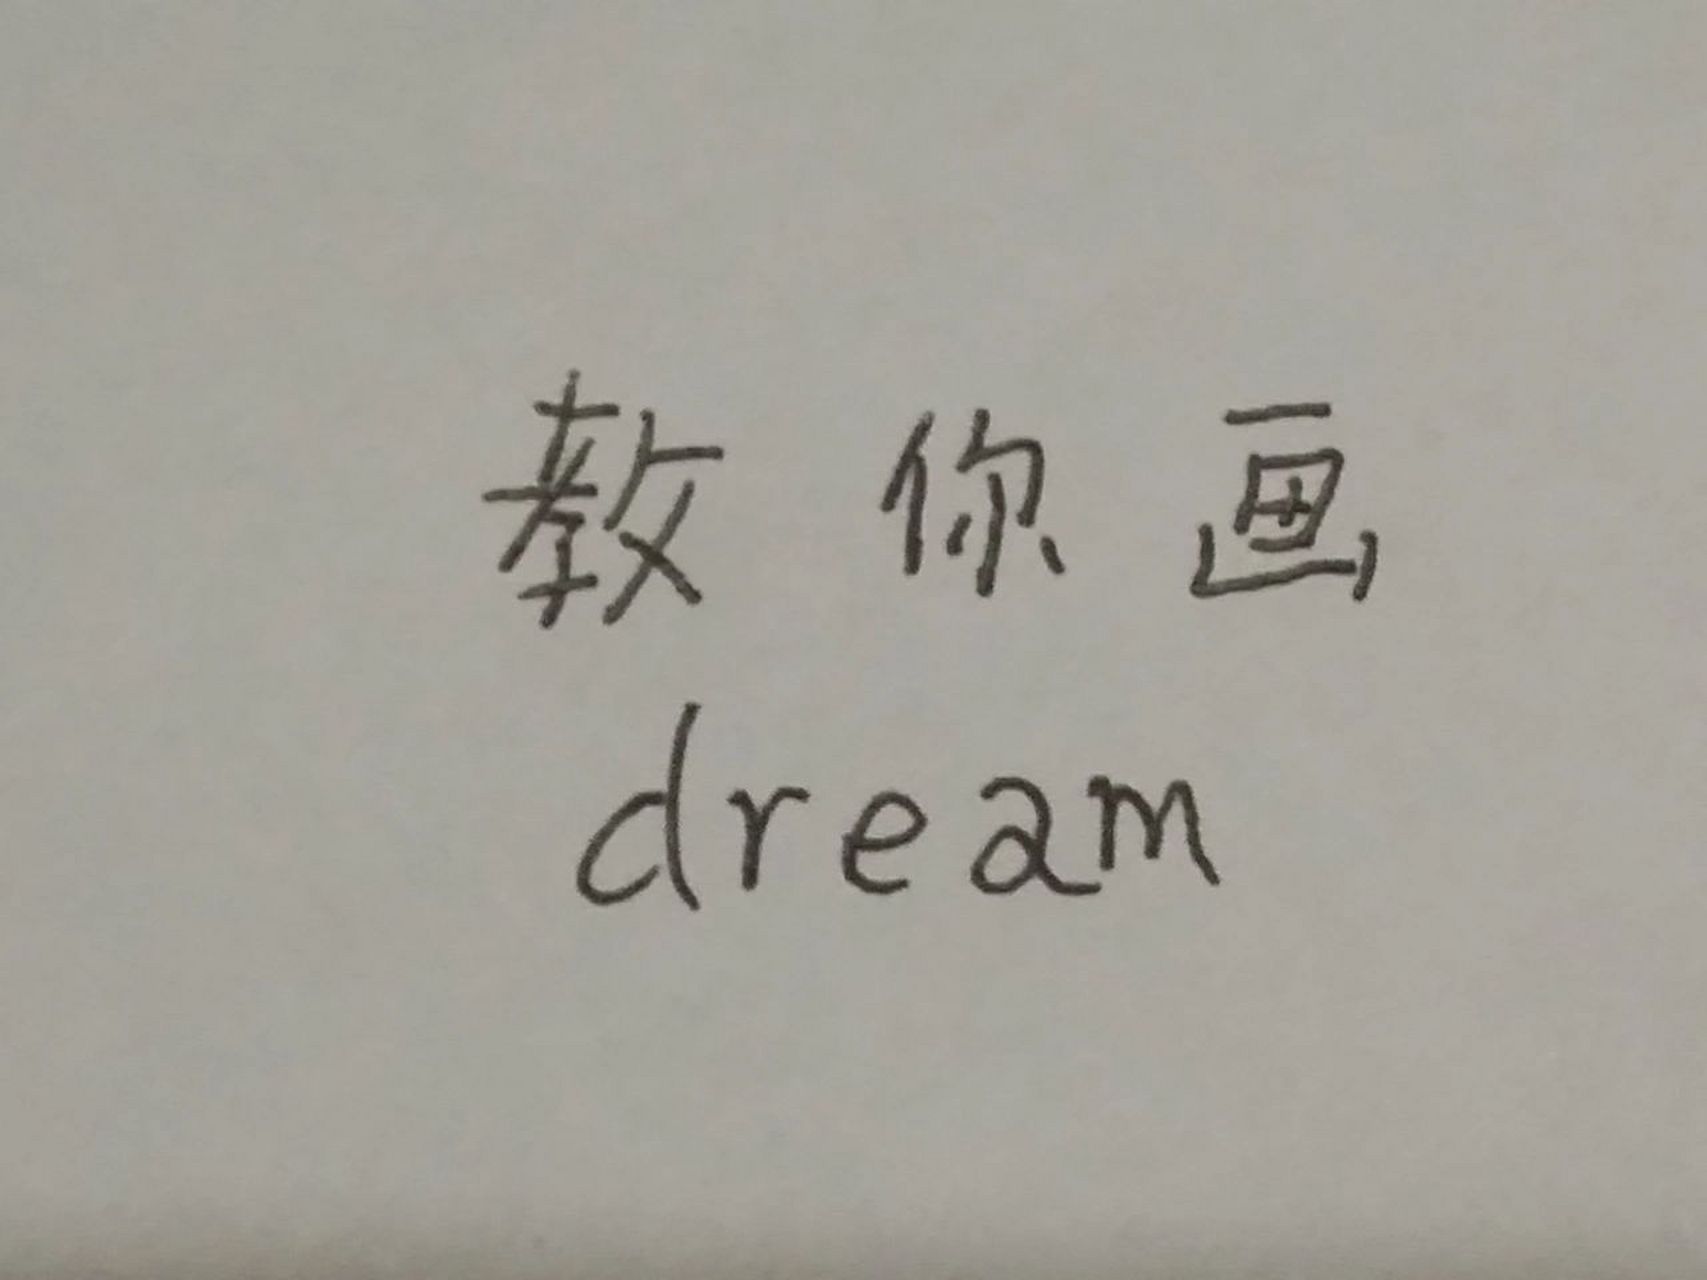 教你画
dream